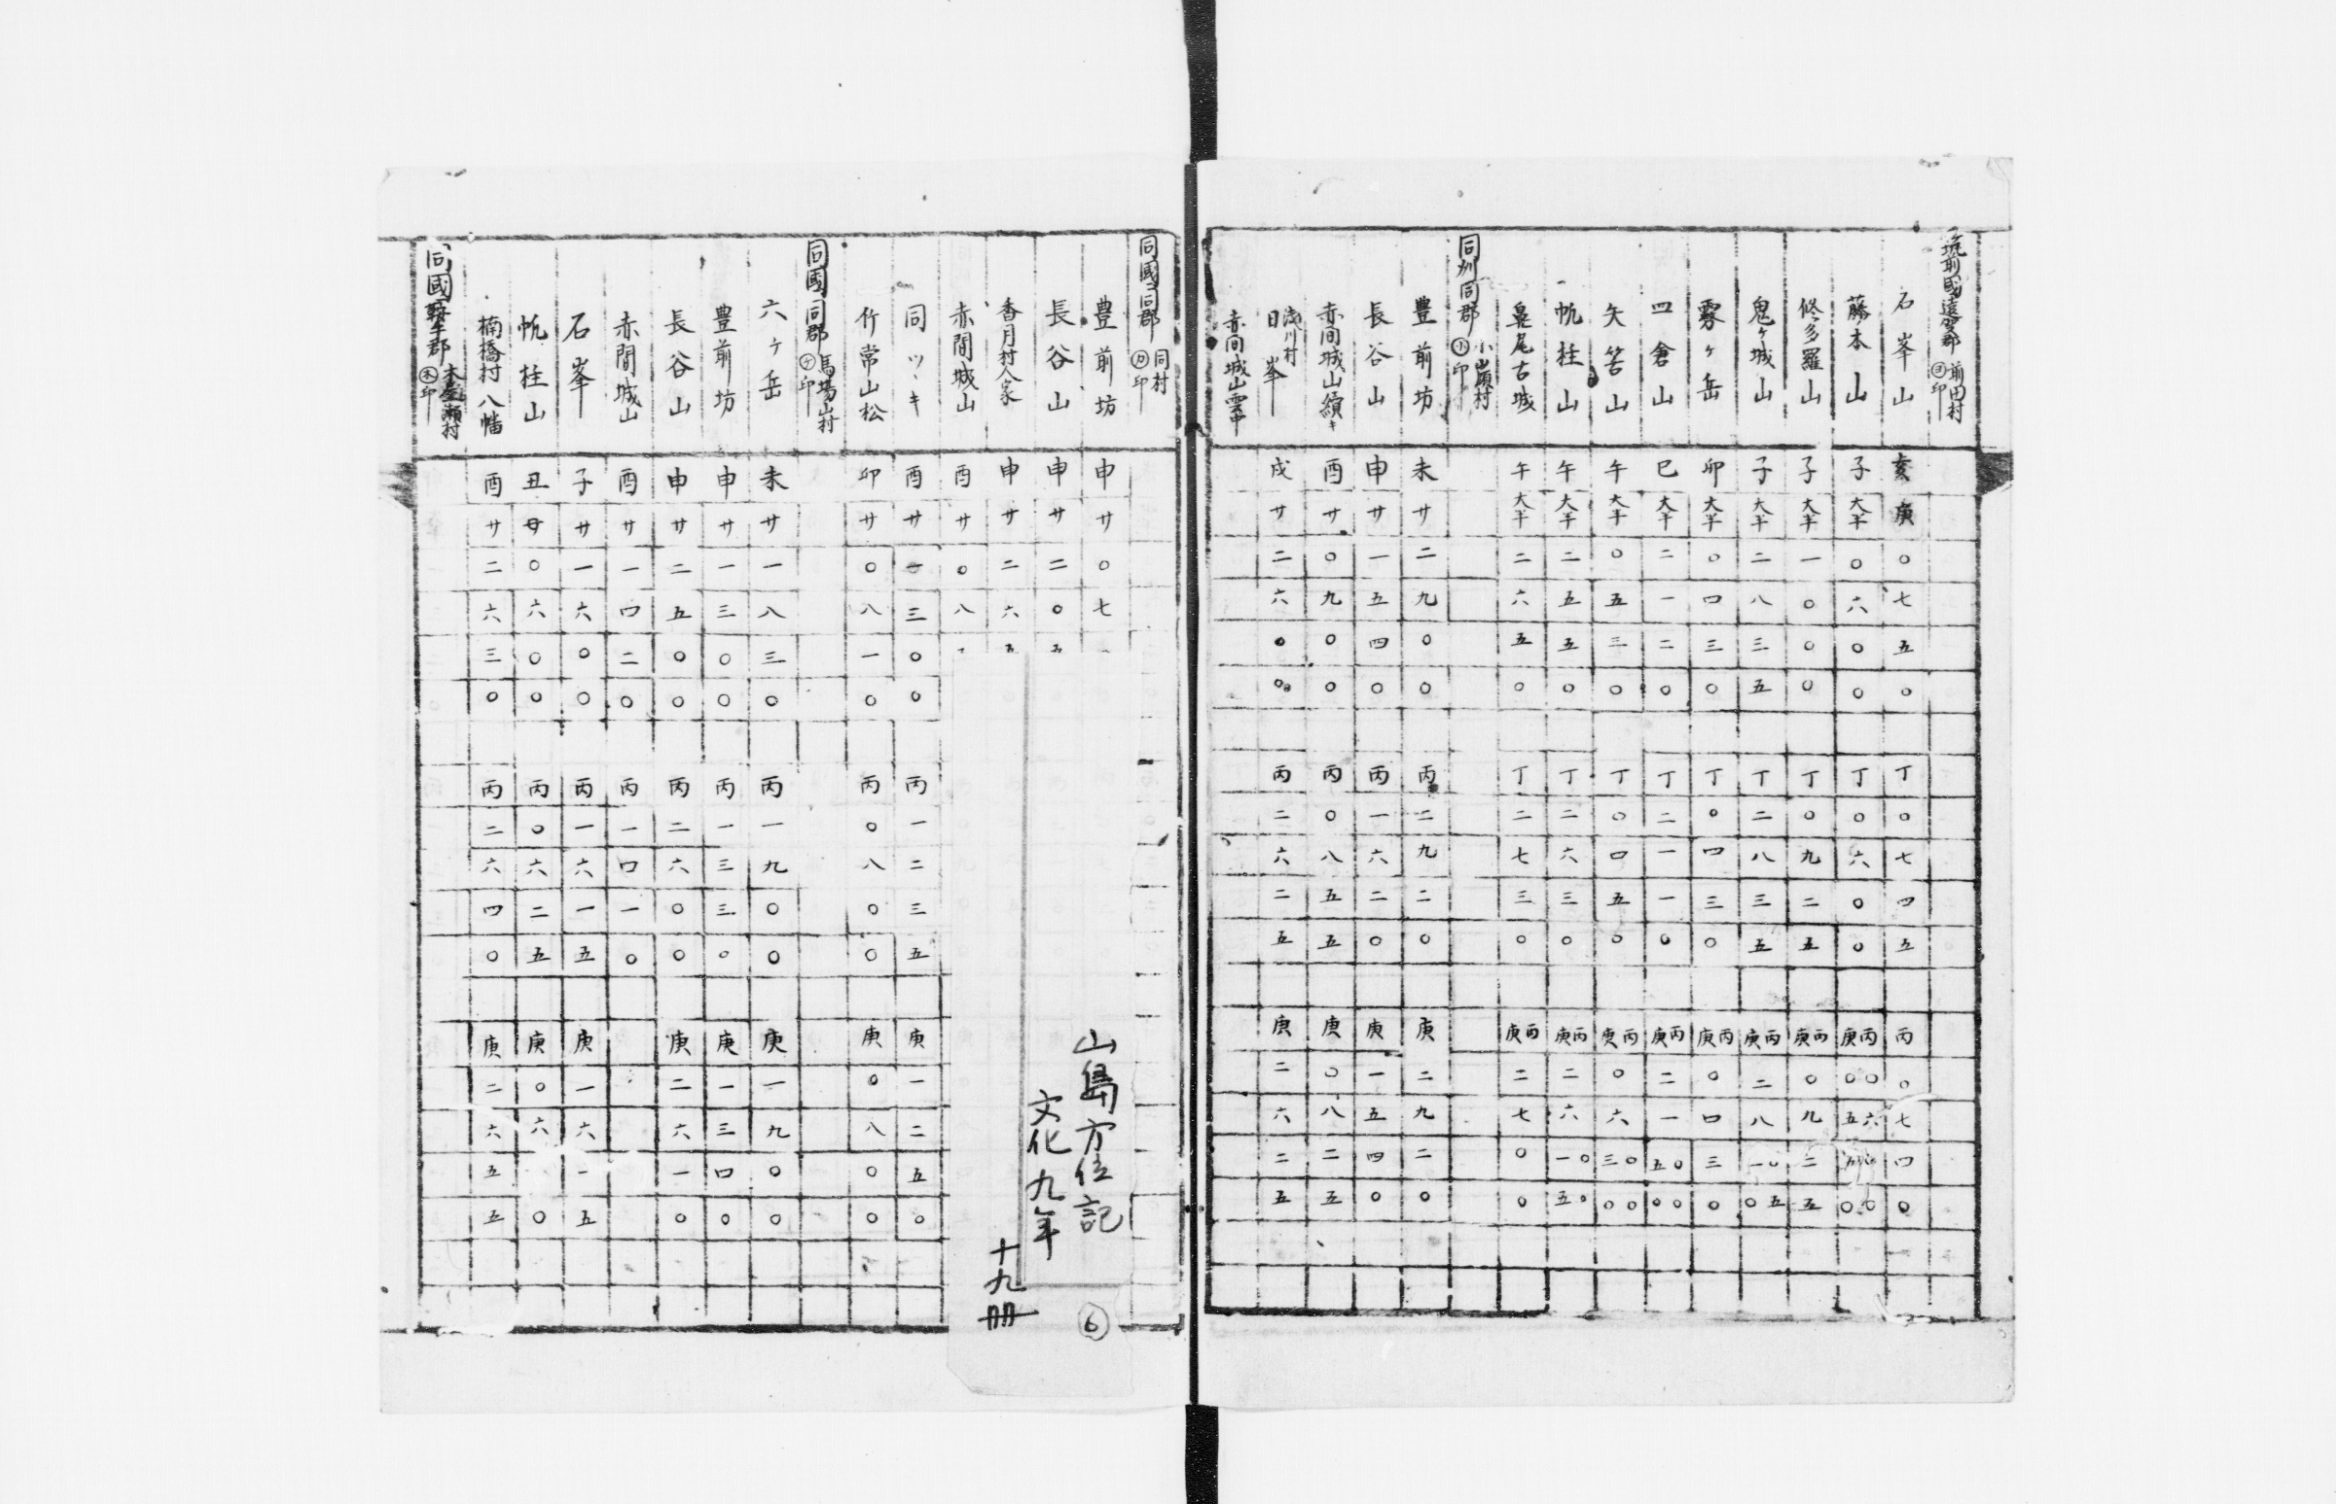 筑前國遠賀郡 前田村 ㋵印
石峯山 亥 庚 〇 七 五 〇 丁 〇 七 四 五 丙 〇 七 四 〇
藤本山 子 大半 〇 六 〇 〇 丁 〇 六 〇 〇 庚丙
修多羅山 子 大半 一 〇 〇 〇 丁 〇 九 二 五 庚丙 〇 九 二 五
鬼ヶ城山 子 大半 二 八 三 五 丁 二 八 三 五 庚丙 二 八 一〇 〇五
霧ヶ岳 卯 大半 〇 四 三 〇 丁 〇 四 三 〇 庚丙 〇 四 三 〇
四倉山 巳 大半 二 一 二 〇 丁 二 一 一 〇 庚丙 二 一 五〇 〇〇
矢筈山 午 大半 〇 五 三 〇 丁 〇 四 五 〇 庚丙 〇 六 三〇 〇〇
帆柱山 午 大半 二 五 五 〇 丁 二 六 三 〇 庚丙 二 六 一〇 五〇
皇尾古城 午 大半 二 六 五 〇 丁 二 七 三 〇 庚丙 二 七 〇 〇
同州同郡 小嶺村 ㋣印
豊前坊 未 廿 二 九 〇 〇 丙 二 九 二 〇 庚 二 九 二 〇
長谷山 申 廿 一 五 四 〇 丙 一 六 二 〇 庚 一 五 四 〇
赤間城山續キ 酉 廿 〇 九 〇 〇 丙 〇 八 五 五 庚 〇 八 二 五
浅川村 日峯 戌 廿 二 六 〇 〇 丙 二 六 二 五 庚 二 六 二 五
赤間城山雲中
同國同郡 同村 ㋕印
豊前坊 申 廿 〇 七
長谷山 申 廿 二 〇 五
香月村人家 申 廿 二 六 五
赤間城山 酉 廿 〇 八
同ツヽキ 酉 廿 一 三 〇 〇 丙 一 二 三 五 庚 一 二 五 〇
竹常山松 卯 廿 〇 八 一 〇 丙 〇 八 〇 〇 庚 〇 八 〇 〇
同國同郡 馬場山村 印
六ヶ岳 未 廿 一 八 三 〇 丙 一 九 〇 〇 庚 一 九 〇 〇
豊前坊 申 廿 一 三 〇 〇 丙 一 三 三 〇 庚 一 三 四 〇
長谷山 申 廿 二 五 〇 〇 丙 二 六 〇 〇 庚 二 六 一 〇
赤間城山 酉 廿 一 四 二 〇 丙 一 四 一 〇
石峯 子 廿 一 六 〇 〇 丙 一 六 一 五 庚 一 六 一 五
帆柱山 丑 廿 〇 六 〇 〇 丙 〇 六 二 五 庚 〇 六 〇
楠橋村八幡 酉 廿 二 六 三 〇 丙 二 六 四 〇 庚 二 六 五 五
同國鞍手郡 木屋瀬村 ㋭印
山島方位記
文化九年
十九冊
⑥